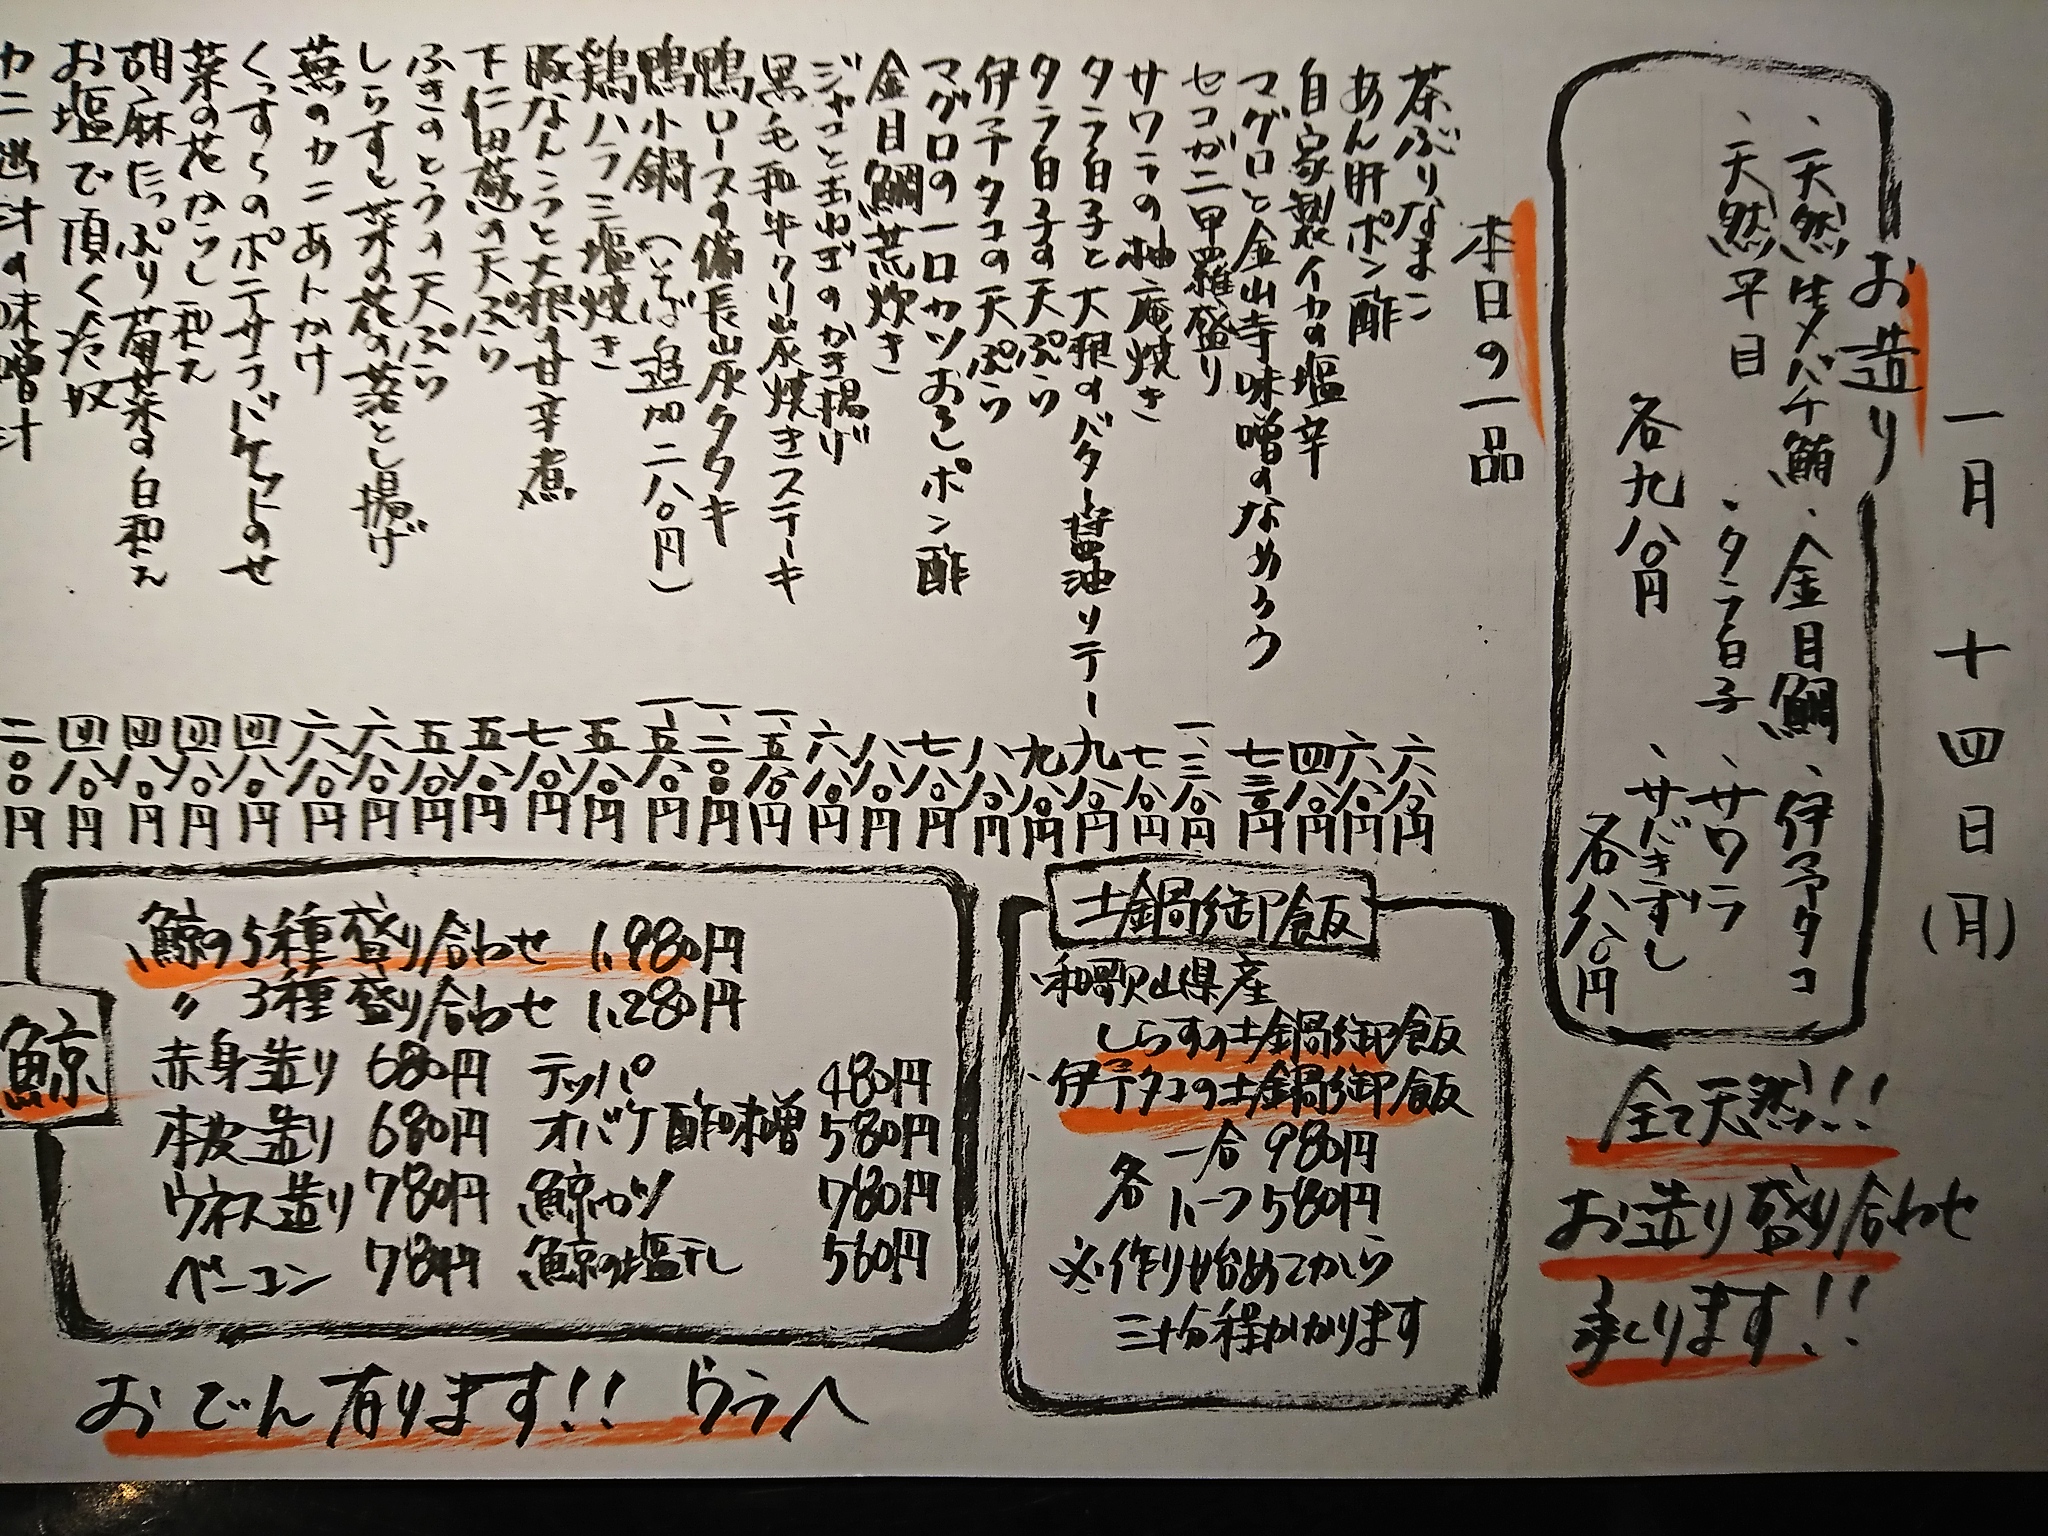 一月 十四日(月)
お造り
、天然生メバチ鮪 、金目鯛 、伊予タコ
、天然平目 、タラ白子 、サワラ
各九八〇円
、サバきずし
各八八〇円
全て天然!!
お造り盛り合わせ
承ります!!
本日の一品
茶ぶりなまこ 六八〇円
あん肝ポン酢 六八〇円
自家製イカの塩辛 四八〇円
マグロと金山寺味噌のなめろう 七三〇円
セコガニ甲羅盛り 一、三八〇円
サワラの柚庵焼き 七八〇円
タラ白子と大根のバター醤油ソテー 九八〇円
タラ白子の天ぷら 九八〇円
伊予タコの天ぷら 八八〇円
マグロの一口カツおろしポン酢 七八〇円
金目鯛荒炊き 八八〇円
ジャコと玉ねぎのかき揚げ 六八〇円
黒毛和牛クリ炭焼きステーキ 一、五八〇円
鴨ロースの備長炭タタキ 一、二〇〇円
鴨小鍋(そば追加二八〇円) 一、五八〇円
鶏ハラミ塩焼き 五八〇円
豚なんこつと大根の甘辛煮 七八〇円
下仁田葱の天ぷら 五八〇円
ふきのとうの天ぷら 五八〇円
しらすと菜の花の落とし揚げ 六八〇円
蕪のカニあんかけ 六八〇円
くっすらのポテサラバケットのせ 四八〇円
菜の花からし和え 四八〇円
胡麻たっぷり菊菜の白和え 四八〇円
お塩で頂く冷奴 四八〇円
カニ出汁の味噌汁 二〇〇円
土鍋御飯
、和歌山県産
しらすの土鍋御飯
、伊予タコの土鍋御飯
各 一合 980円
ハーフ 580円
※作り始めてから
三十分程かかります
鯨
鯨の5種盛り合わせ 1,980円
〃 3種盛り合わせ 1,280円
赤身造り 680円 テッパ 480円
本皮造り 680円 オバケ酢味噌 580円
ウネス造り 780円 鯨カツ 780円
ベーコン 780円 鯨の塩干し 560円
おでん有ります!! ウラへ